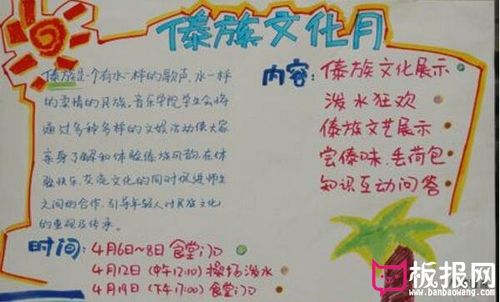 傣族文化月
傣族是一个有水一样的歌声,水一样
的柔情的民族,音乐学院学生会将
通过多种多样的文娱活动使大家
亲身了解和体验傣族风韵,在体
验快乐,交流文化的同时促进师生
之间的合作,引导年轻人对民族文化
的重视及传承。
内容:傣族文化展示
泼水狂欢
傣族文艺展示
尝傣味,丢荷包
知识互动问答
时间:4月6日~8日 食堂门口
4月12日(中午12:10)操场泼水
4月19日(下午17:00)食堂门口
板报网
www.banbaowang.com